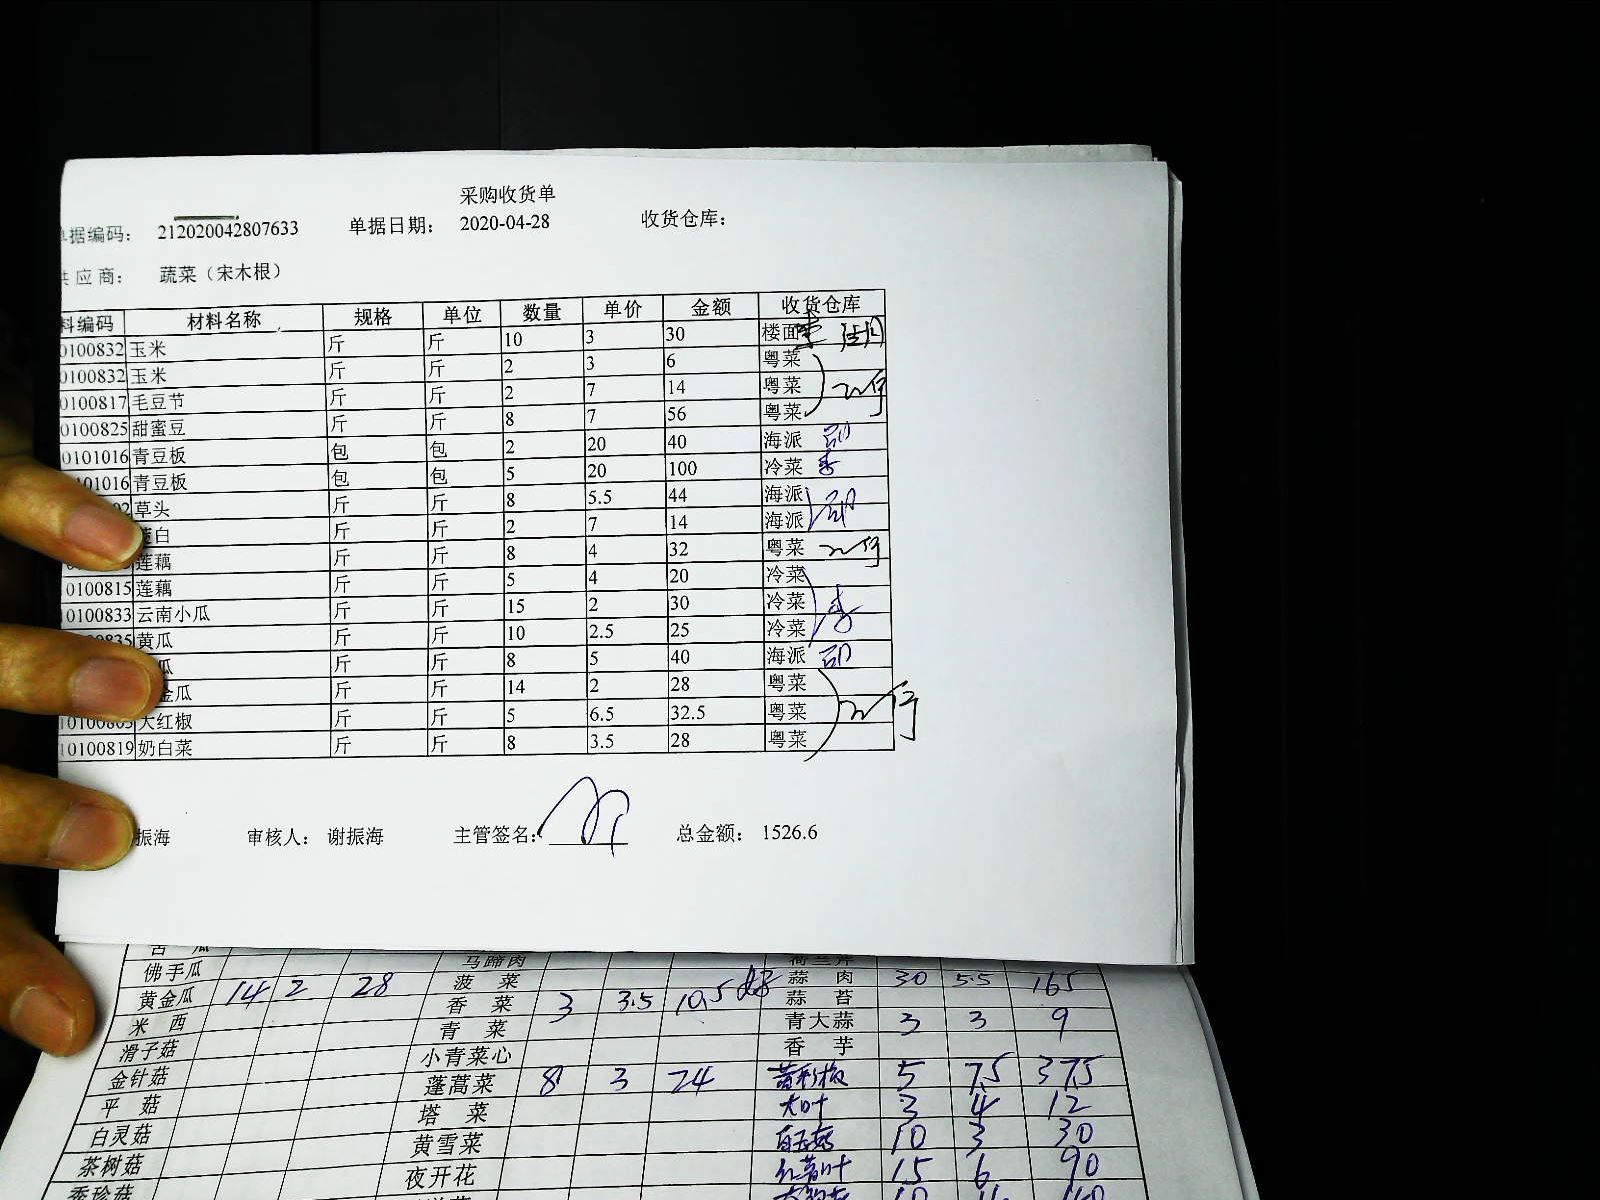 采购收货单
据编码： 212020042807633 单据日期： 2020-04-28 收货仓库：
应商： 蔬菜（宋木根）
料编码 材料名称 规格 单位 数量 单价 金额 收货仓库
0100832 玉米 斤 斤 10 3 30 楼面
0100832 玉米 斤 斤 2 3 6 粤菜
0100817 毛豆节 斤 斤 2 7 14 粤菜
0100825 甜蜜豆 斤 斤 8 7 56 粤菜
0101016 青豆板 包 包 2 20 40 海派
101016 青豆板 包 包 5 20 100 冷菜
02 草头 斤 斤 8 5.5 44 海派
白 斤 斤 2 7 14 海派
莲藕 斤 斤 8 4 32 粤菜
0100815 莲藕 斤 斤 5 4 20 冷菜
0100833 云南小瓜 斤 斤 15 2 30 冷菜
00835 黄瓜 斤 斤 10 2.5 25 冷菜
瓜 斤 斤 8 5 40 海派
金瓜 斤 斤 14 2 28 粤菜
10100803 大红椒 斤 斤 5 6.5 32.5 粤菜
10100819 奶白菜 斤 斤 8 3.5 28 粤菜
振海 审核人： 谢振海 主管签名： 总金额： 1526.6
苦瓜 马蹄肉 荷兰芹
佛手瓜 菠菜 蒜肉 30 5.5 165
黄金瓜 14 2 28 香菜 3 3.5 10.5 蒜苔
米西 青菜 青大蒜 3 3 9
滑子菇 小青菜心 香芋
金针菇 蓬蒿菜 8 3 24 5 7.5 37.5
平菇 塔菜 大叶 3 4 12
白灵菇 黄雪菜 白玉菇 10 3 30
茶树菇 夜开花 红薯叶 15 6 90
秀珍菇